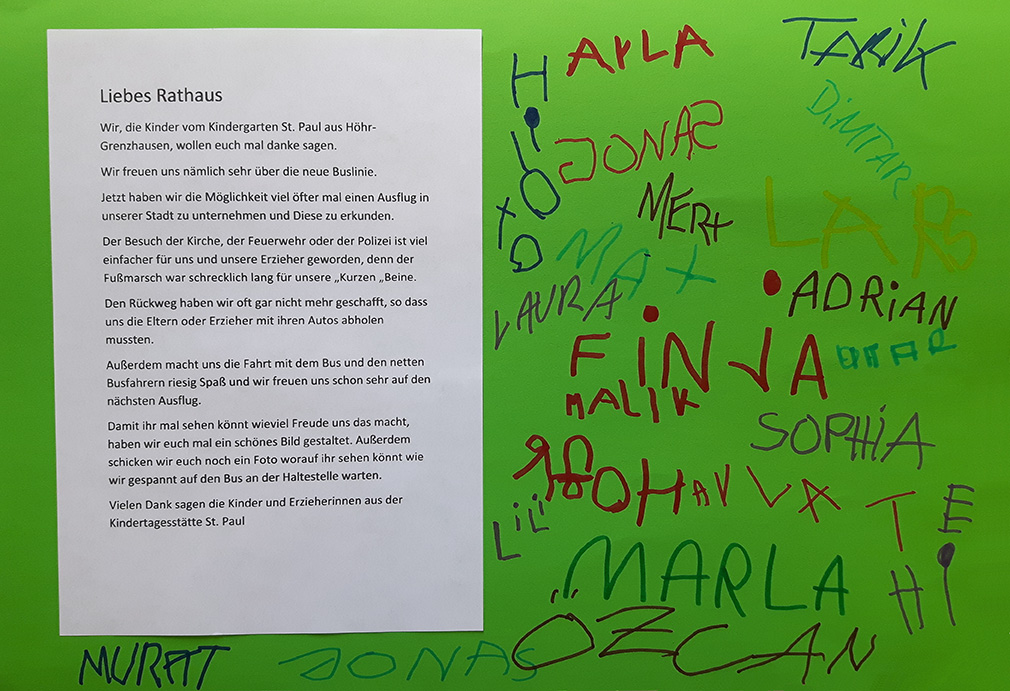 Liebes Rathaus
Wir, die Kinder vom Kindergarten St. Paul aus Höhr-
Grenzhausen, wollen euch mal danke sagen.
Wir freuen uns nämlich sehr über die neue Buslinie.
Jetzt haben wir die Möglichkeit viel öfter mal einen Ausflug in
unserer Stadt zu unternehmen und Diese zu erkunden.
Der Besuch der Kirche, der Feuerwehr oder der Polizei ist viel
einfacher für uns und unsere Erzieher geworden, denn der
Fußmarsch war schrecklich lang für unsere „Kurzen „Beine.
Den Rückweg haben wir oft gar nicht mehr geschafft, so dass
uns die Eltern oder Erzieher mit ihren Autos abholen
mussten.
Außerdem macht uns die Fahrt mit dem Bus und den netten
Busfahrern riesig Spaß und wir freuen uns schon sehr auf den
nächsten Ausflug.
Damit ihr mal sehen könnt wieviel Freude uns das macht,
haben wir euch mal ein schönes Bild gestaltet. Außerdem
schicken wir euch noch ein Foto worauf ihr sehen könnt wie
wir gespannt auf den Bus an der Haltestelle warten.
Vielen Dank sagen die Kinder und Erzieherinnen aus der
Kindertagesstätte St. Paul
AYLA
TARIK
DiMTAR
JONAS
MERt
LARS
MAX
LAURA
ADRiAN
FiNJA
MALIK
SOPHiA
LiLi
MARLA
ÖZCAN
MURAT
JONAS